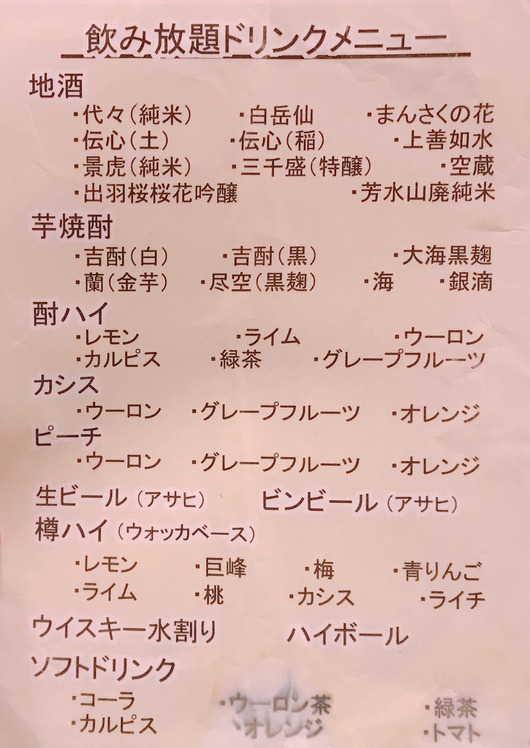 飲み放題ドリンクメニュー
地酒
・代々（純米） ・白岳仙 ・まんさくの花
・伝心（土） ・伝心（稲） ・上善如水
・景虎（純米） ・三千盛（特醸） ・空蔵
・出羽桜桜花吟醸 ・芳水山廃純米
芋焼酎
・吉酎（白） ・吉酎（黒） ・大海黒麹
・蘭（金芋） ・尽空（黒麹） ・海 ・銀滴
酎ハイ
・レモン ・ライム ・ウーロン
・カルピス ・緑茶 ・グレープフルーツ
カシス
・ウーロン ・グレープフルーツ ・オレンジ
ピーチ
・ウーロン ・グレープフルーツ ・オレンジ
生ビール（アサヒ） ビンビール（アサヒ）
樽ハイ（ウォッカベース）
・レモン ・巨峰 ・梅 ・青りんご
・ライム ・桃 ・カシス ・ライチ
ウイスキー水割り ハイボール
ソフトドリンク
・コーラ ・ウーロン茶 ・緑茶
・カルピス ・オレンジ ・トマト